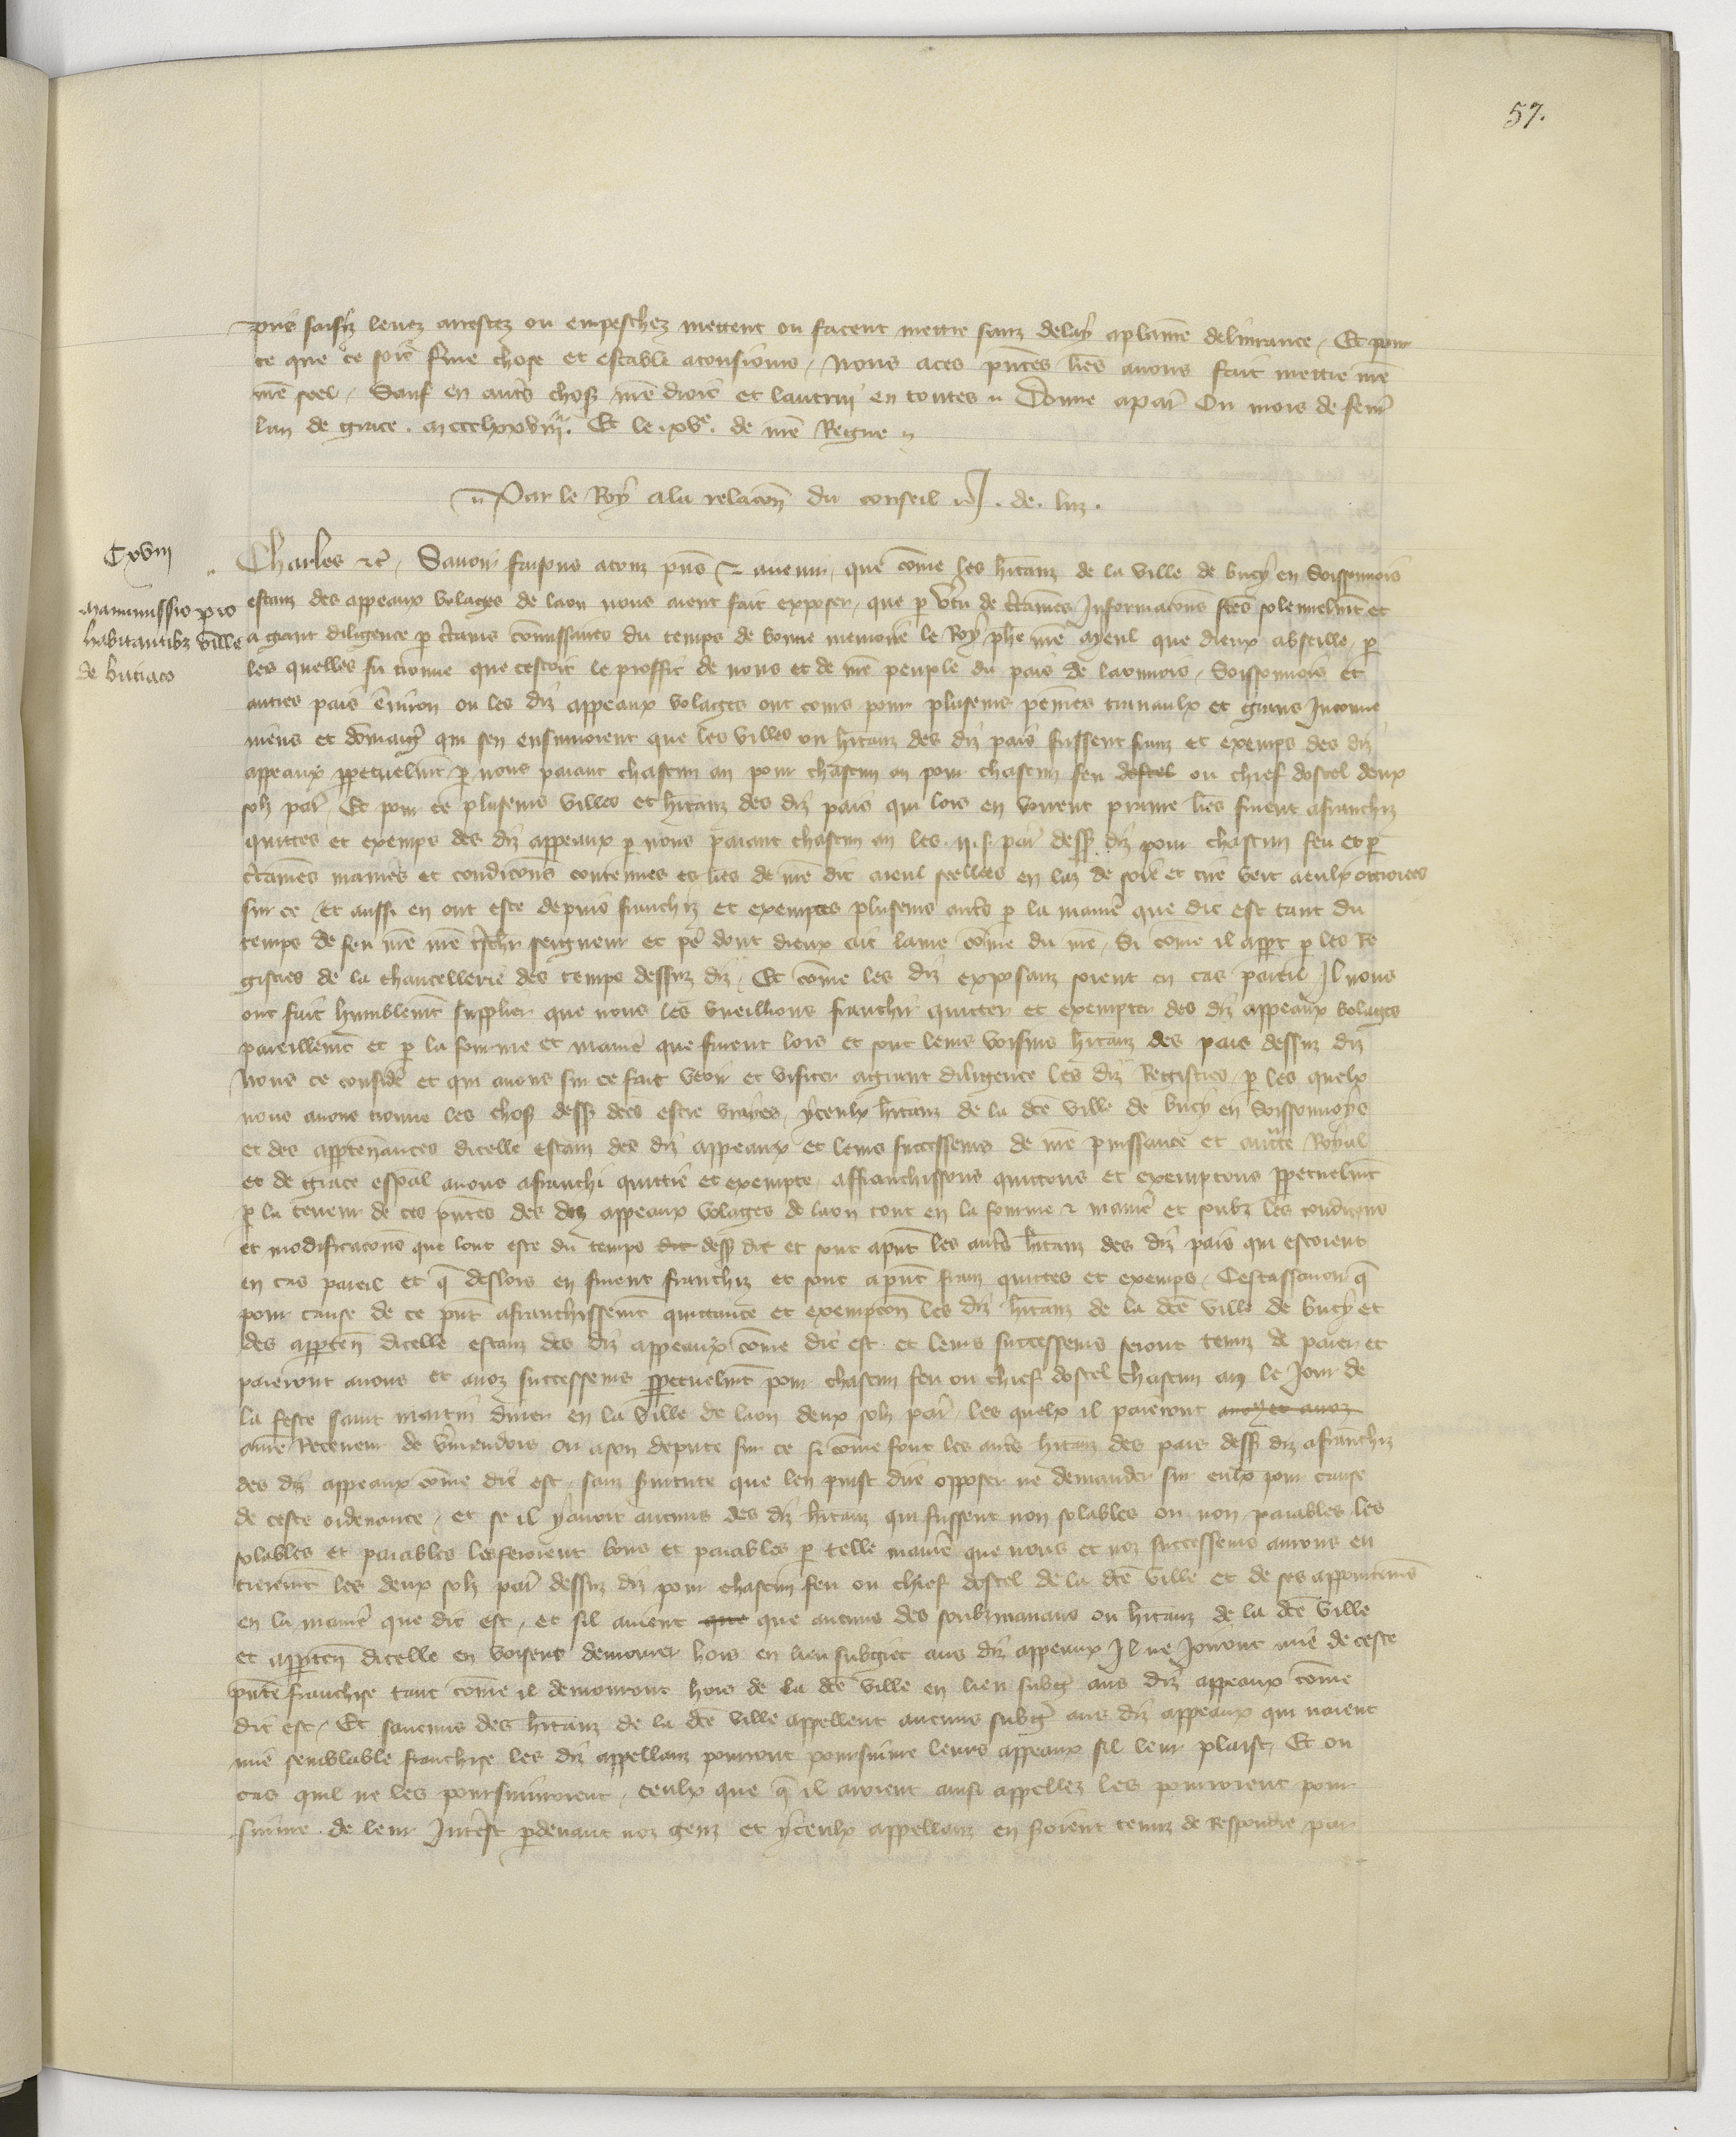 57.
pris saisiz levez arrestez ou empeschez mettent ou facent mettre sanz delay aplaine delivrance, Et pour
ce que ce soit ferme chose et estable atousiours, Nous aces pntes lres avons fait mettre nre
nre seel, Sauf en autres choses nre droit et lautruy en toutes Donne apar Ou mois de fevr
lan de grace . mccclxxviii. Et le .xve. de nre Regne
Par le Roy ala relacon du conseil J. de. luz.
Cxviii
manumissio pro
habitantibz ville
de buciaco
Charles etc, Savoir faisons atouz pns et avenir, que come les hitanz de la ville de bucy en Soissonnois
estanz des appeaux volages de laon nous aient fait exposer, que p vtu de ctaines Informacons ftes solennelmt et
a grant diligence p ctains comissaires du temps de bonne memoire le Roy phe nre ayeul que dieux absoille, p
les quelles fu trouve que cestoit le proffit de nous et de nre peuple du pais de laonnois, Soissonnois et
autres pais environ ou les diz appeaux volages ont cours pour pluseurs peines travaulx et grans Inconve
niens et domaiges qui sen ensuivoient que les villes ou hitanz des diz pais fussent frans et exemps des diz
appeaux ppetuelmt, p nous paiant chascun an pour chascun an pour chascun feu dostel ou chief dostel deux
solz par, Et pour ce pluseurs villes et hitanz des diz pais qui lors en vorrent prinre lres furent afranchiz
quittes et exemps des diz appeaux p nous paiant chascun an les .ii.s. par dess diz pour chascun feu et p
ctaines manies et condicons contenues es lres de nre dit aieul seellees en laz de soie et cire vert aeulx ottroiees
sur ce Et aussi en ont este depuis franchiz et exemptes pluseurs autres p la maniere que dit est tant du
temps de feu nre nre tschr seigneur et pe dont dieux ait lame come du nre, Si come il appt p les Re
gistres de la chancellerie des temps dessuz diz, Et come les diz exposanz soient en cas pareil Il nous
ont fait humblemt supplier que nous les vueillions franchir quitter et exempter des diz appeaux volages
pareillemt et p la fourme et maniere que furent lors et sont leurs voisins hitanz des pais dessuz diz
Nous ce consider et qui avons sur ce fait veoir et visiter agrant diligence les diz Registres, p les quelx
nous avons trouve les choses dess dces estre vraies, yceulx hitanz de la dce ville de bucy en Soissonnoys
et des apptenances dicelle estanz des diz appeaux et leurs successeurs de nre puissance et autte Royal
et de grace espal avons afranchi quittie et exempte, affranchissons quittons et exemptons ppetuelmt
p la teneur de ces pntes des diz appeaux volages de laon tout en la fourme et maniere et soubz les condicons
et modificacons que lont este du temps dit dess dit et sont apnt les autres hitanz des diz pais qui estoient
en cas pareil et q deslors en furent franchiz et sont apnt franz quittes et exemps, Cestassavoir q
pour cause de ce pnt afranchissemt quittance et exempcon les diz hitanz de la dce ville de bucy et
des apptен dicelle estanz des diz appeaux come dit est et leurs successeurs seront tenuz de paier et
paieront anous et anoz successeurs ppetuelmt pour chascun feu ou chief dostel chascun an le Jour de
la feste saint martin diver en la ville de laon deux solz par, les quelx il paieront anoz et anoz
anre Receveur de vmendois ou a son depute sur ce si come font les autres hitanz des pais dess diz afranchiz
des diz appeaux come dit est, sanz servitute que len puist dire opposer ne demander sur eulx pour cause
de ceste ordenance, et se il yavoit aucuns des diz hitanz qui fussent non solables ou non paiables les
solables et paiables lesferoient bons et paiables p telle maniere que nous et noz successeurs aurons en
tieremt les deux solz par dessuz diz pour chascun feu ou chief dostel de la dce ville et de ses appartenans
en la maniere que dit est, et sil avient que que aucuns des soubzmanans ou hitanz de la dce ville
et apparten dicelle en voisent demourer hors en lieu subgiet aus diz appeaux Il ne Jorront mie de ceste
pnte franchise tant come il demourront hors de la dce ville en lieu subg aus diz appeaux come
dit est, Et saucuns des hitanz de la dce ville appellent aucuns subg aus diz appeaux qui naient
mie semblable franchise les diz appellanz pourront poursuivre leurs appeaux sil leur plaist, Et ou
cas quil ne les poursuivroient, ceulx que q il aroient ainsi appellez les pourroient pour
suivre de leur Interest pdevant noz genz et yceulx appellanz en seroient tenuz de Respondre par